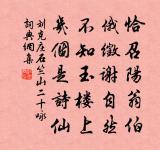 恰召陽翁伯
俄徵謝自然
不知玉樓上
幾個是詩仙
劉克庄石竺山二十咏
詞典網集